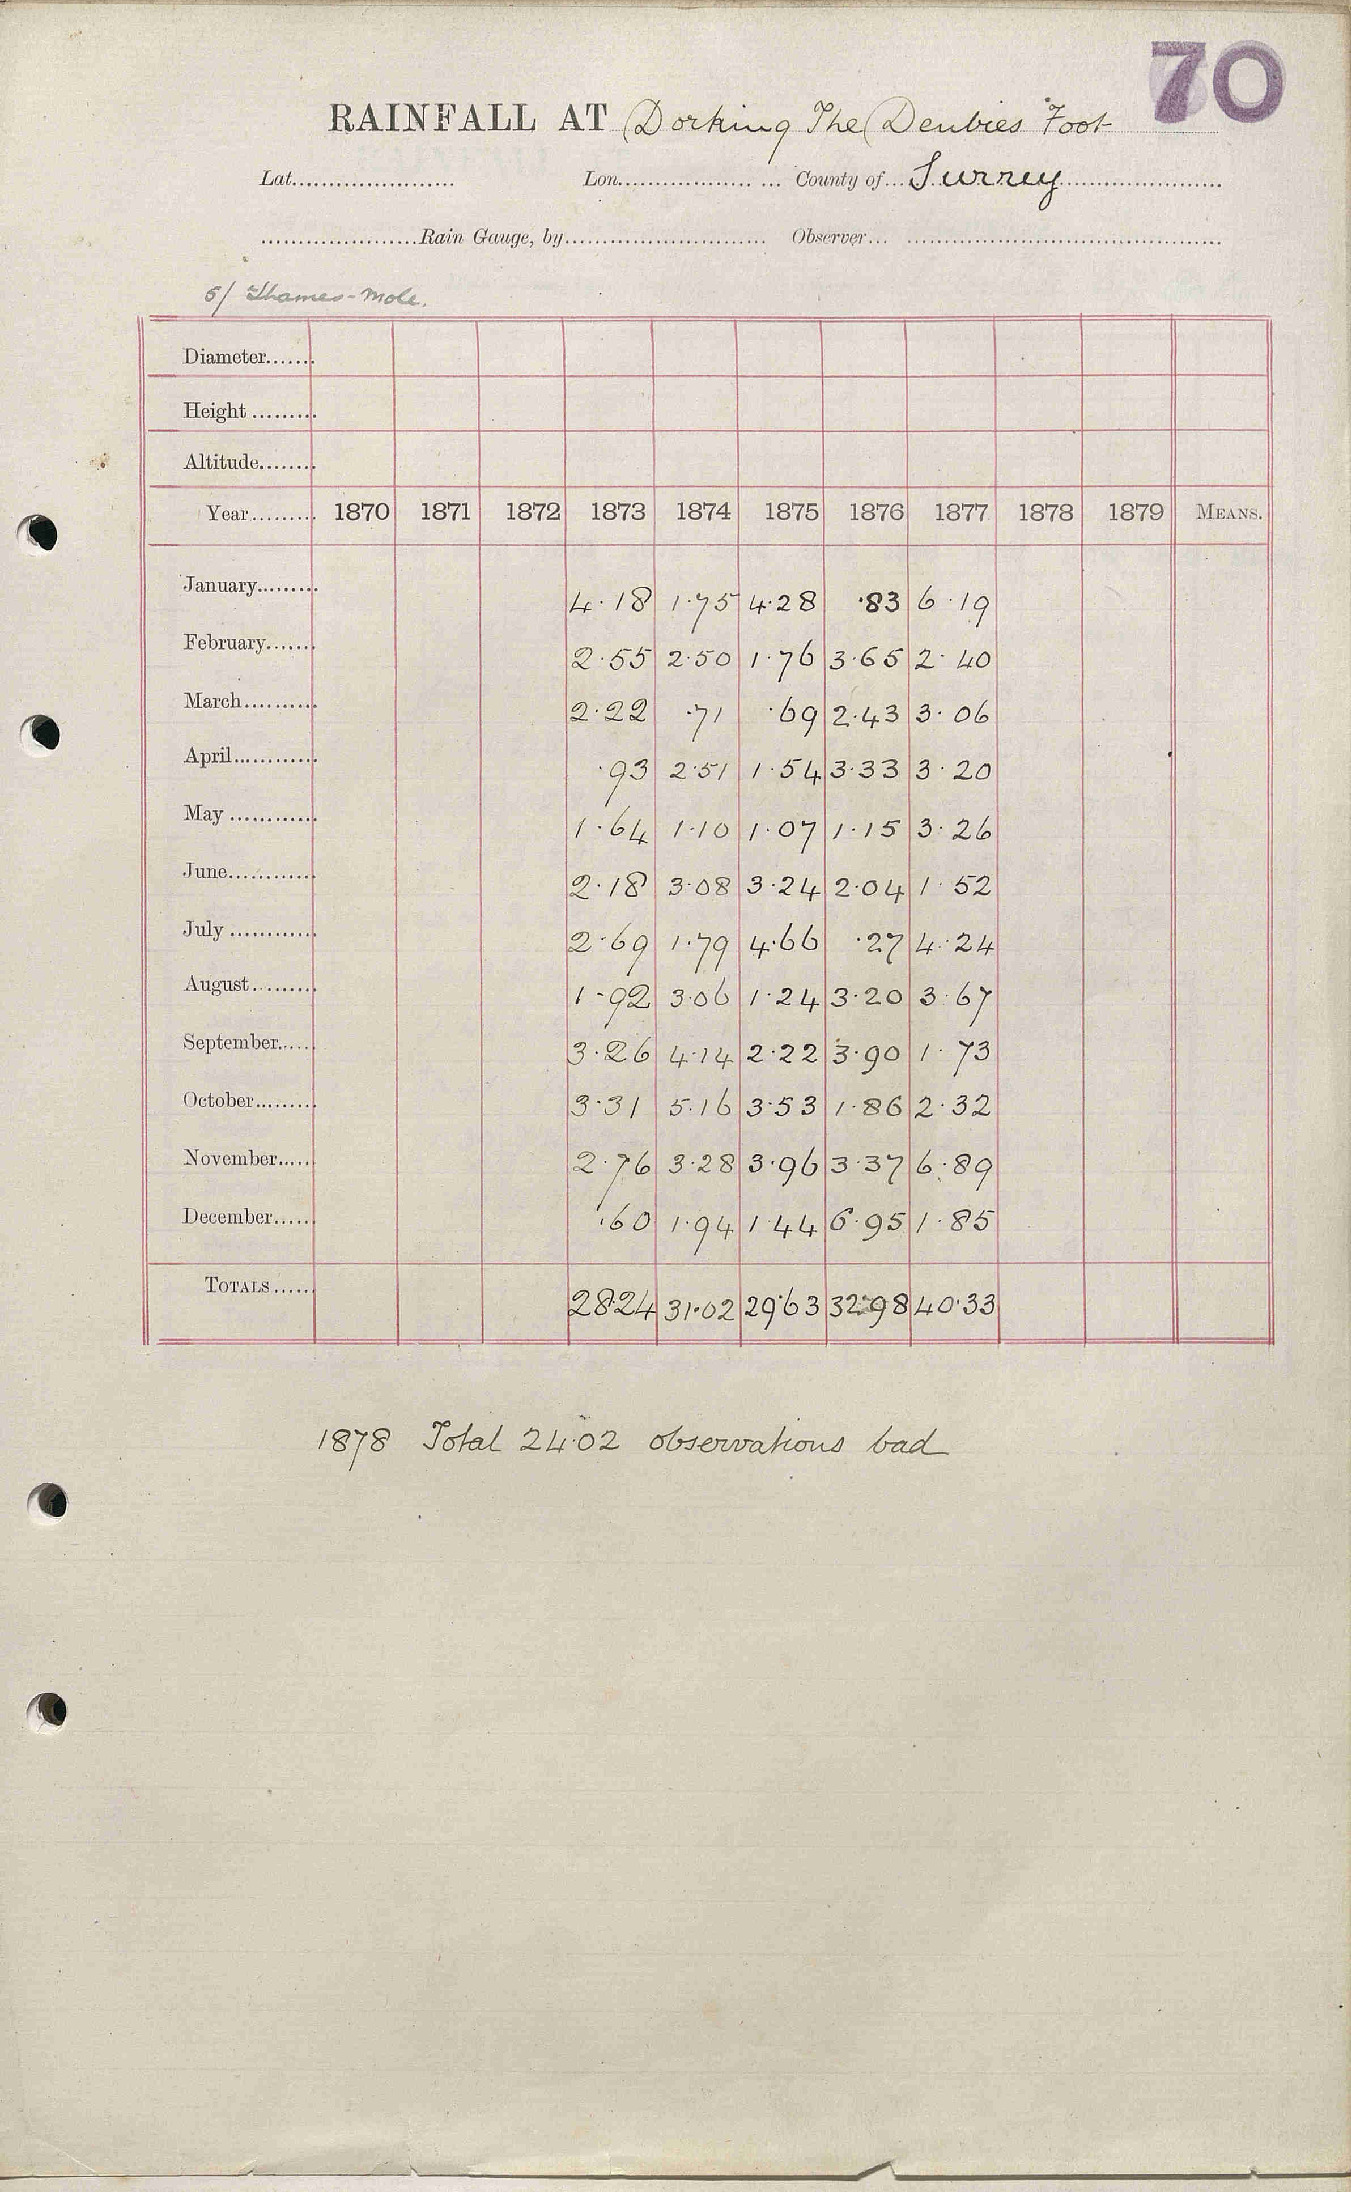 70
RAINFALL AT Dorking The Denbies Foot
Lat. Lon. County of Surrey
Rain Gauge, by Observer
5/ Thames-Mole.
Diameter
Height
Altitude
Year 1870 1871 1872 1873 1874 1875 1876 1877 1878 1879 MEANS.
January 4.18 1.75 4.28 .83 6.19
February 2.55 2.50 1.76 3.65 2.40
March 2.22 .71 .69 2.43 3.06
April .93 2.51 1.54 3.33 3.20
May 1.64 1.10 1.07 1.15 3.26
June 2.18 3.08 3.24 2.04 1.52
July 2.69 1.79 4.66 .27 4.24
August 1.92 3.06 1.24 3.20 3.67
September 3.26 4.14 2.22 3.90 1.73
October 3.31 5.16 3.53 1.86 2.32
November 2.76 3.28 3.96 3.37 6.89
December .60 1.94 1.44 6.95 1.85
TOTALS 28.24 31.02 29.63 32.98 40.33
1878 Total 24.02 observations bad